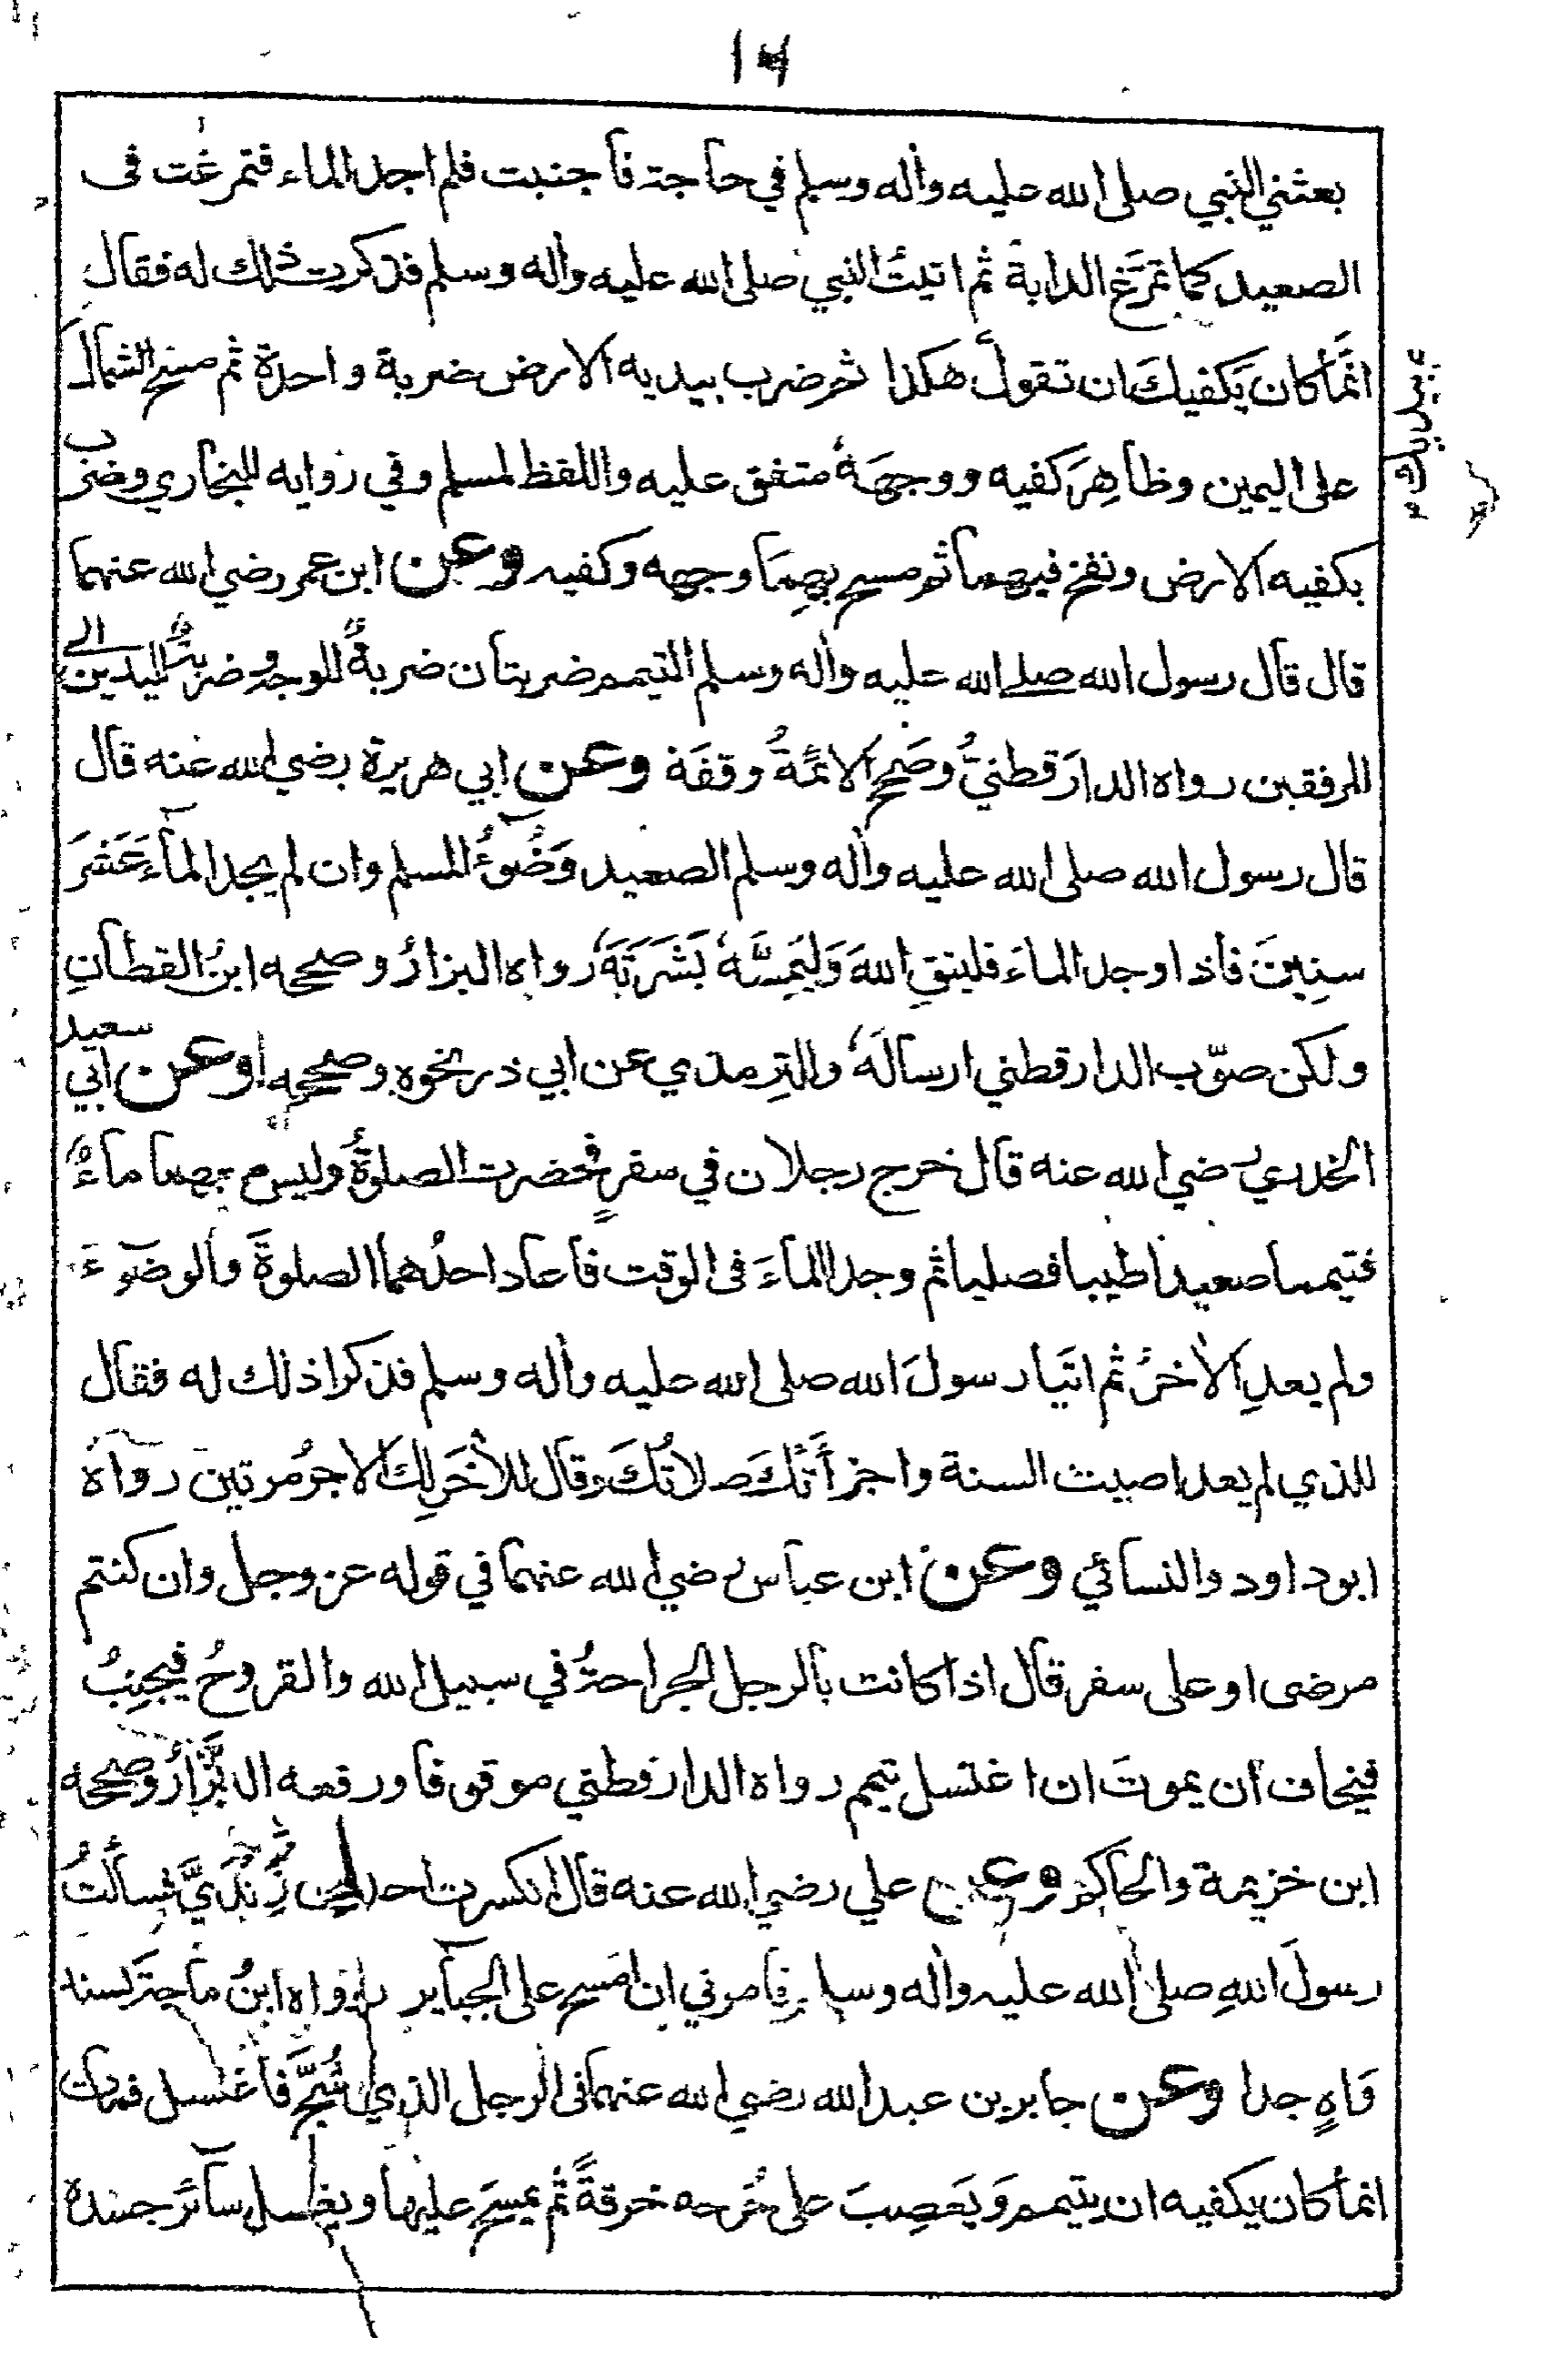 بعثني النبي صلى الله عليه واله وسلم في حاجة فأجنبت فلم اجد الماء فتمرغت فى
الصعيد كما تمرَّغ الدابة ثم اتيتُ النبي صلى الله عليه واله وسلم فذكرت ذلك له فقال
انَّما كان يَكفيكَ ان تقولَ هكذا ثم ضرب بيديه الارض ضربة واحدة ثم مسح الشمالَ
على اليمين وظاهِرَ كفيه ووجهَهُ متفق عليه واللفظ لمسلم وفي رواية للبخاري وضرب
بكفيه الارض ونفخ فيهما ثم مسح بهِمَا وجهه وكفيه وعن ابن عمر رضي الله عنهما
قال قال رسول الله صلے الله عليه واله وسلم التيمم ضربتان ضربةٌ للوجه وضربةٌ لليدين الے
المرفقين رواه الدارَقطنيُّ وصَحح الائمةُ وقفَهَ وعن ابي هريرة رضي الله عنه قال
قال رسول الله صلى الله عليه واله وسلم الصعيد وَضُوءُ المسلم وان لم يجد الماءَ عَشرَ
سنِينَ فاذا وجد الماءَ فليتقِ اللهَ وَليُمِسَّهُ بَشَرَتَهُ رواه البزارُ وصححه ابنُ القطانِ
ولكن صوّب الدارقطني ارسالَهُ والترمذي عن ابي ذر نحوه وصححه وعن ابي سعيد
الخدري رضي الله عنه قال خرج رجلان في سفرٍ فحضرت الصلوةُ وليس بهما ماءٌ
فتيمما صعيداً طيبا فصليا ثم وجدا الماءَ فى الوقت فاعاد احدُهما الصلوةَ والوضوءَ
ولم يعدِ الأخرُ ثم اتَيَا رسولَ الله صلى الله عليه واله وسلم فذكرا ذلك له فقال
للذي لم يعد اصبت السنة واجزأَتكَ صلاتُكَ وقال للأخَرِ لك الاجرُ مرتين رواه
ابوداود والنسائي وعن ابن عباس رضي الله عنهما في قوله عز وجل وان كنتم
مرضى او على سفر قال اذا كانت بالرجل الجراحةُ في سبيل الله والقروحُ فيجنِبُ
فيخاف ان يموتَ ان اغتسل تيمم رواه الدارقطني موقوفا ورفعه البزَّارُ وصححه
ابن خزيمة والحاكم وعن علي رضي الله عنه قال انكسرت احدى زندَيَّ فسألتُ
رسولَ اللهِ صلى الله عليه واله وسلم فامرني ان امسح على الجبآير رواه ابنُ ماجة بسند
وَاهٍ جدا وعن جابر بن عبد الله رضي الله عنهما فى الرجل الذي شُجَّ فاغتسل فمات
انما كان يكفيه ان يتيمم وَيَعصِبَ على جُرحه خرقةً ثم يمسَح عليها ويغسل سآئر جسده